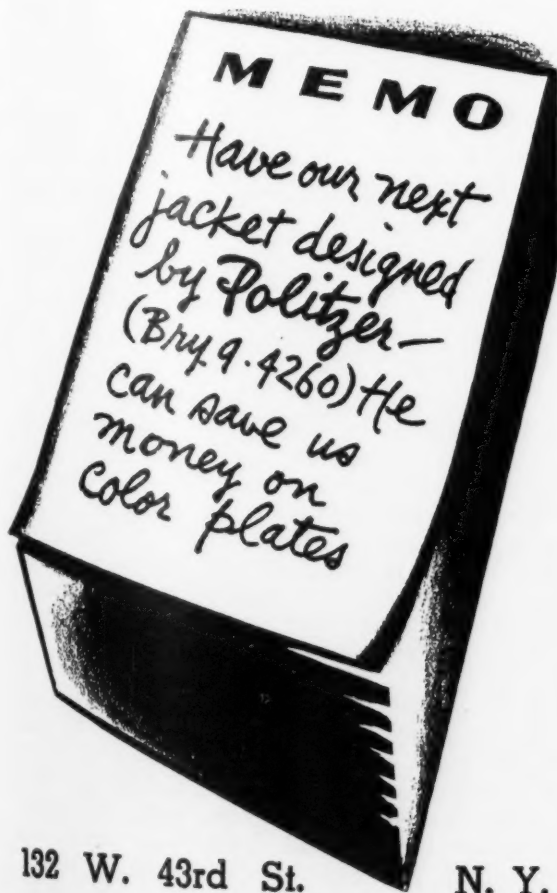 MEMO
Have our next
jacket designed
by Politzer—
(Bry. 9·4260) He
can save us
money on
color plates
132 W. 43rd St. N. Y.